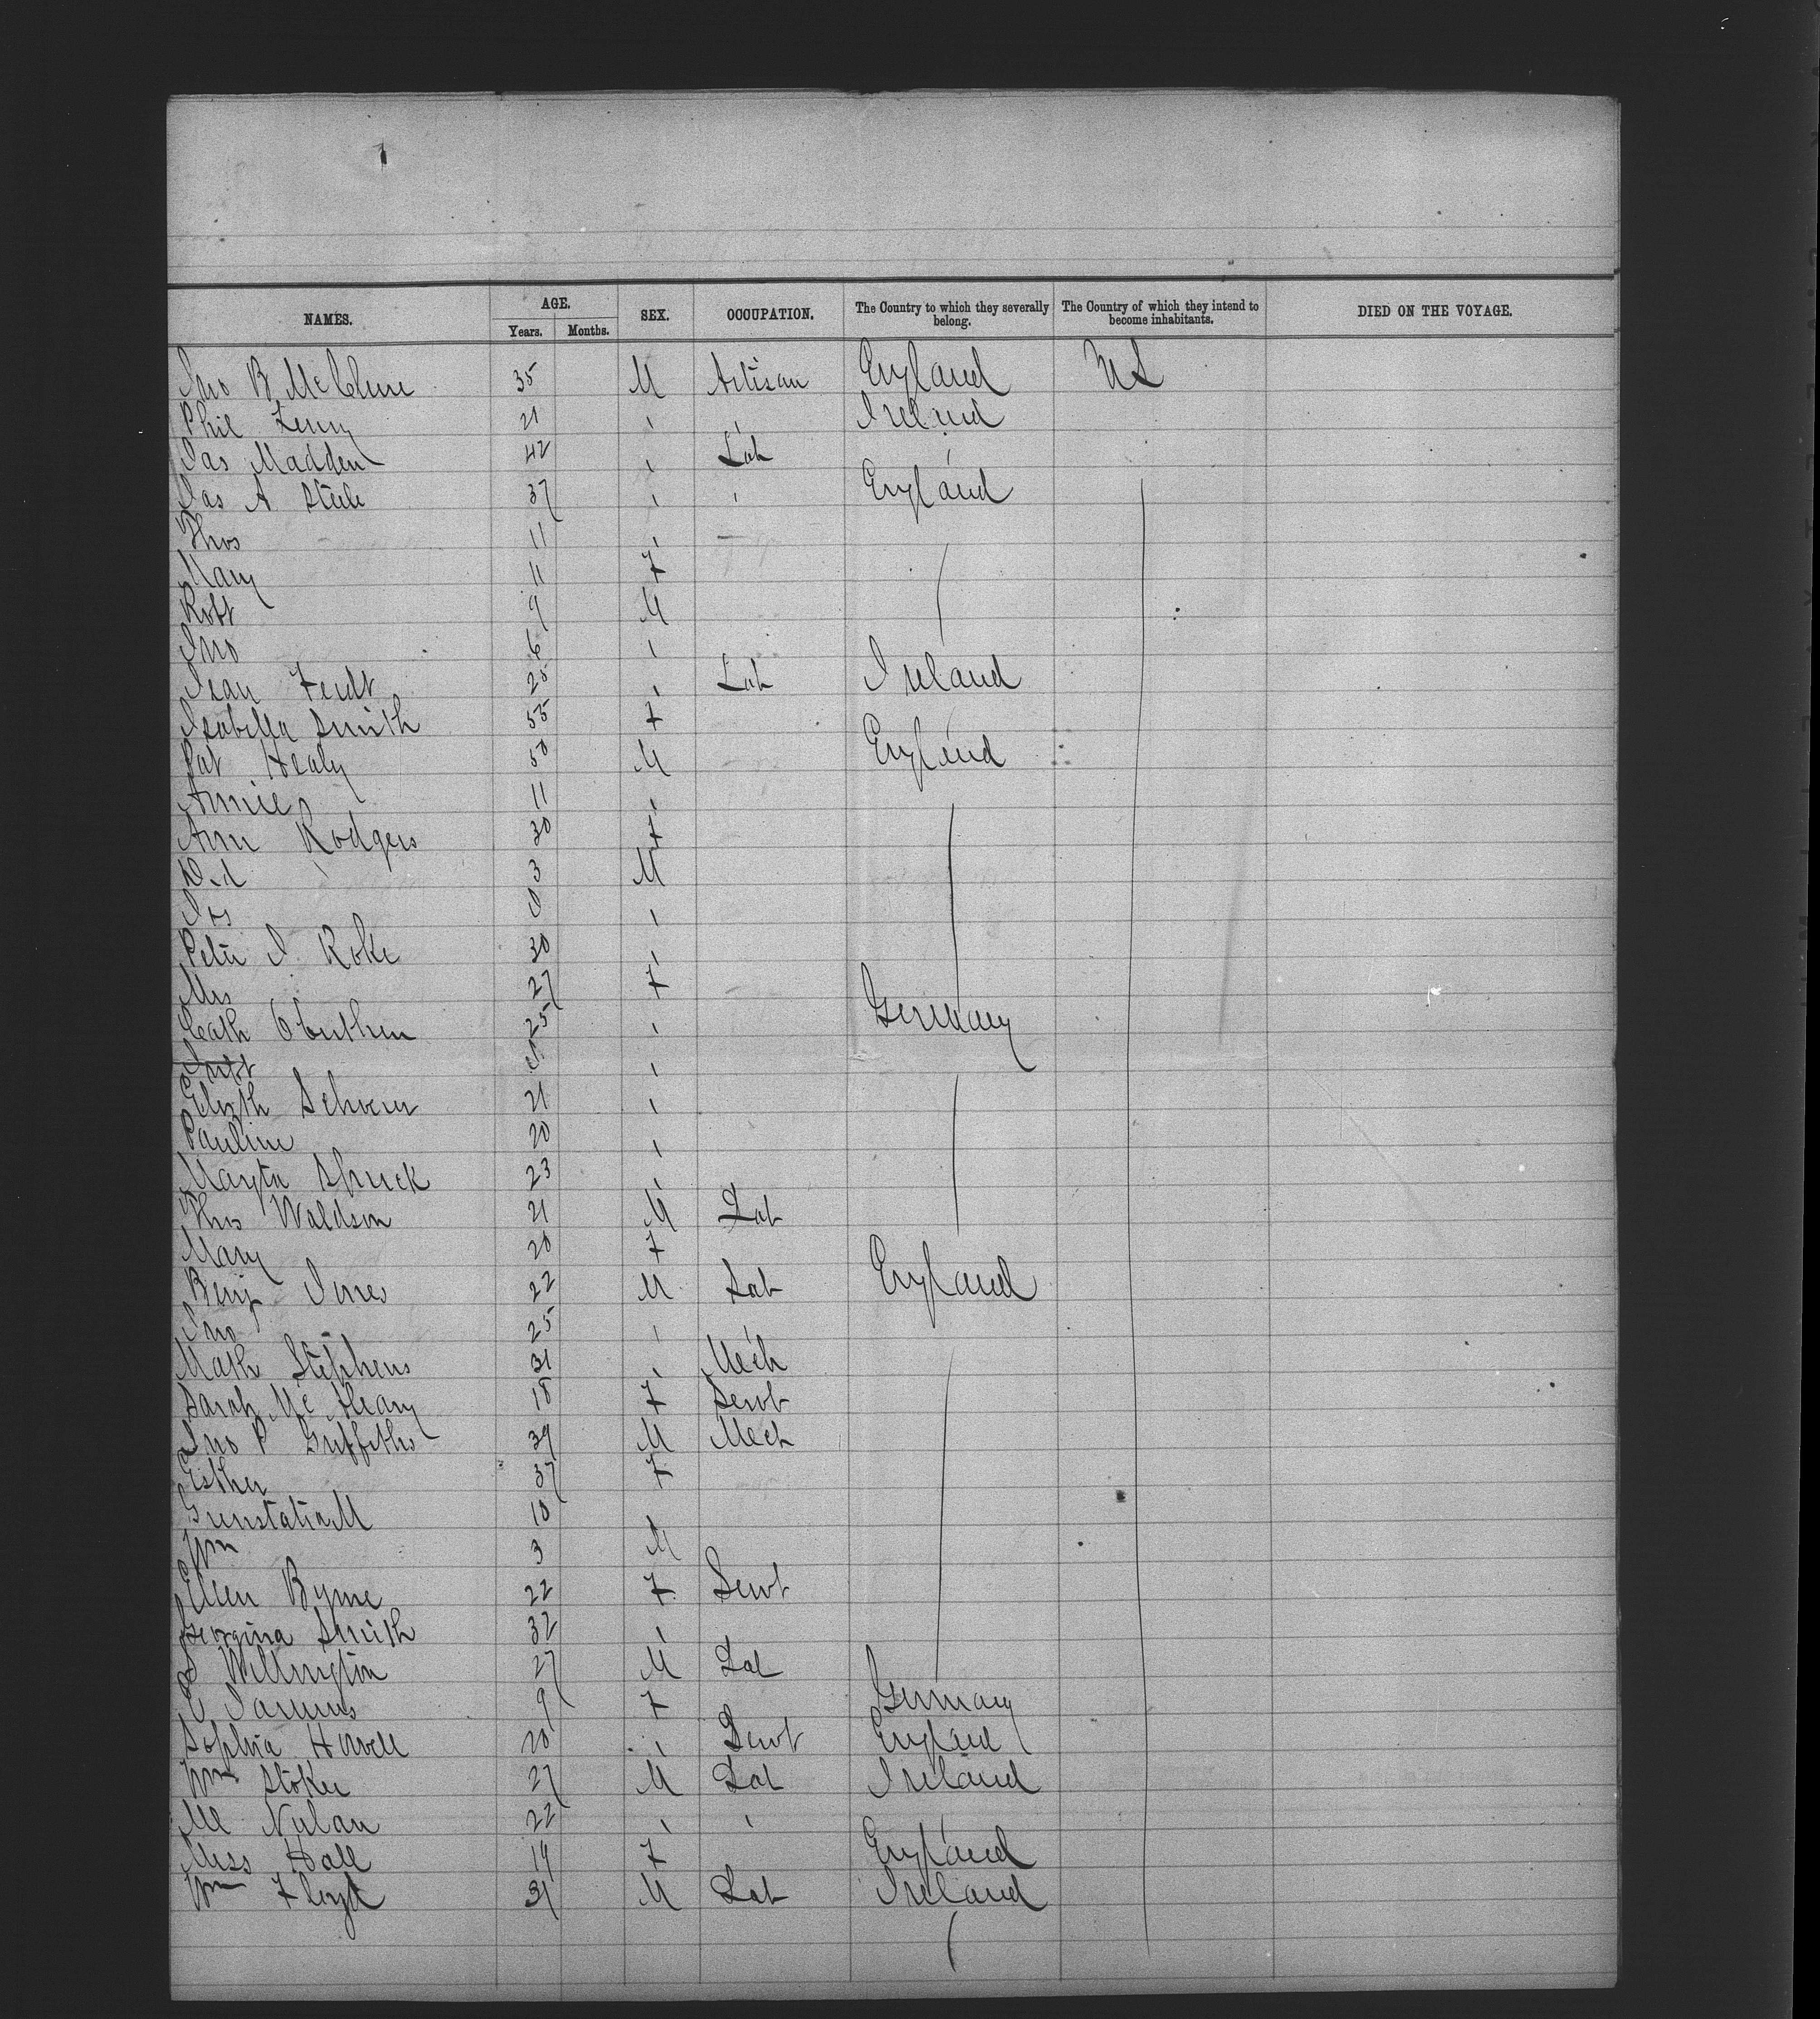 NAMES. AGE. Years. Months. SEX. OCCUPATION. The Country to which they severally belong. The Country of which they intend to become inhabitants. DIED ON THE VOYAGE.
Jno B McClure 35 M Artisan England US
Phil 21 " " Ireland
Jas Madden 42 " Lab "
Jas A Steele 37 " " England
Thos 11 "
Mary 11 F
Robt 9 M
Jno 6 "
28 " Lab Ireland
Isabella Smith 55 F
Pat Healy 50 M England
Annie 11 "
Ann Rodgers 30 F
3 M
Jos "
Peter J Roke 30 "
Mrs 27 F
Cath 25 " Germany
Inft "
Elizth 21 "
Pauline 20 "
Margta 23 "
Thos Waldson 21 M Lab
Mary 20 F
Benj Jones 22 M Lab England
Jno 25 " "
Math Stephens 31 " Mech
Sarah 18 F Servt
Jno P Griffiths 39 M Mech
Esther 37 F
10
Wm 3 M
Ellen Byrne 22 F Servt
Georgina Smith 32 "
Willington 27 M Lab
9 F Germany
Sophia Howell 20 " Servt England
Wm Stoker 27 M Lab Ireland
M Nulan 22 " " "
Miss Hall 19 F England
Wm Floyd 31 M Lab Ireland